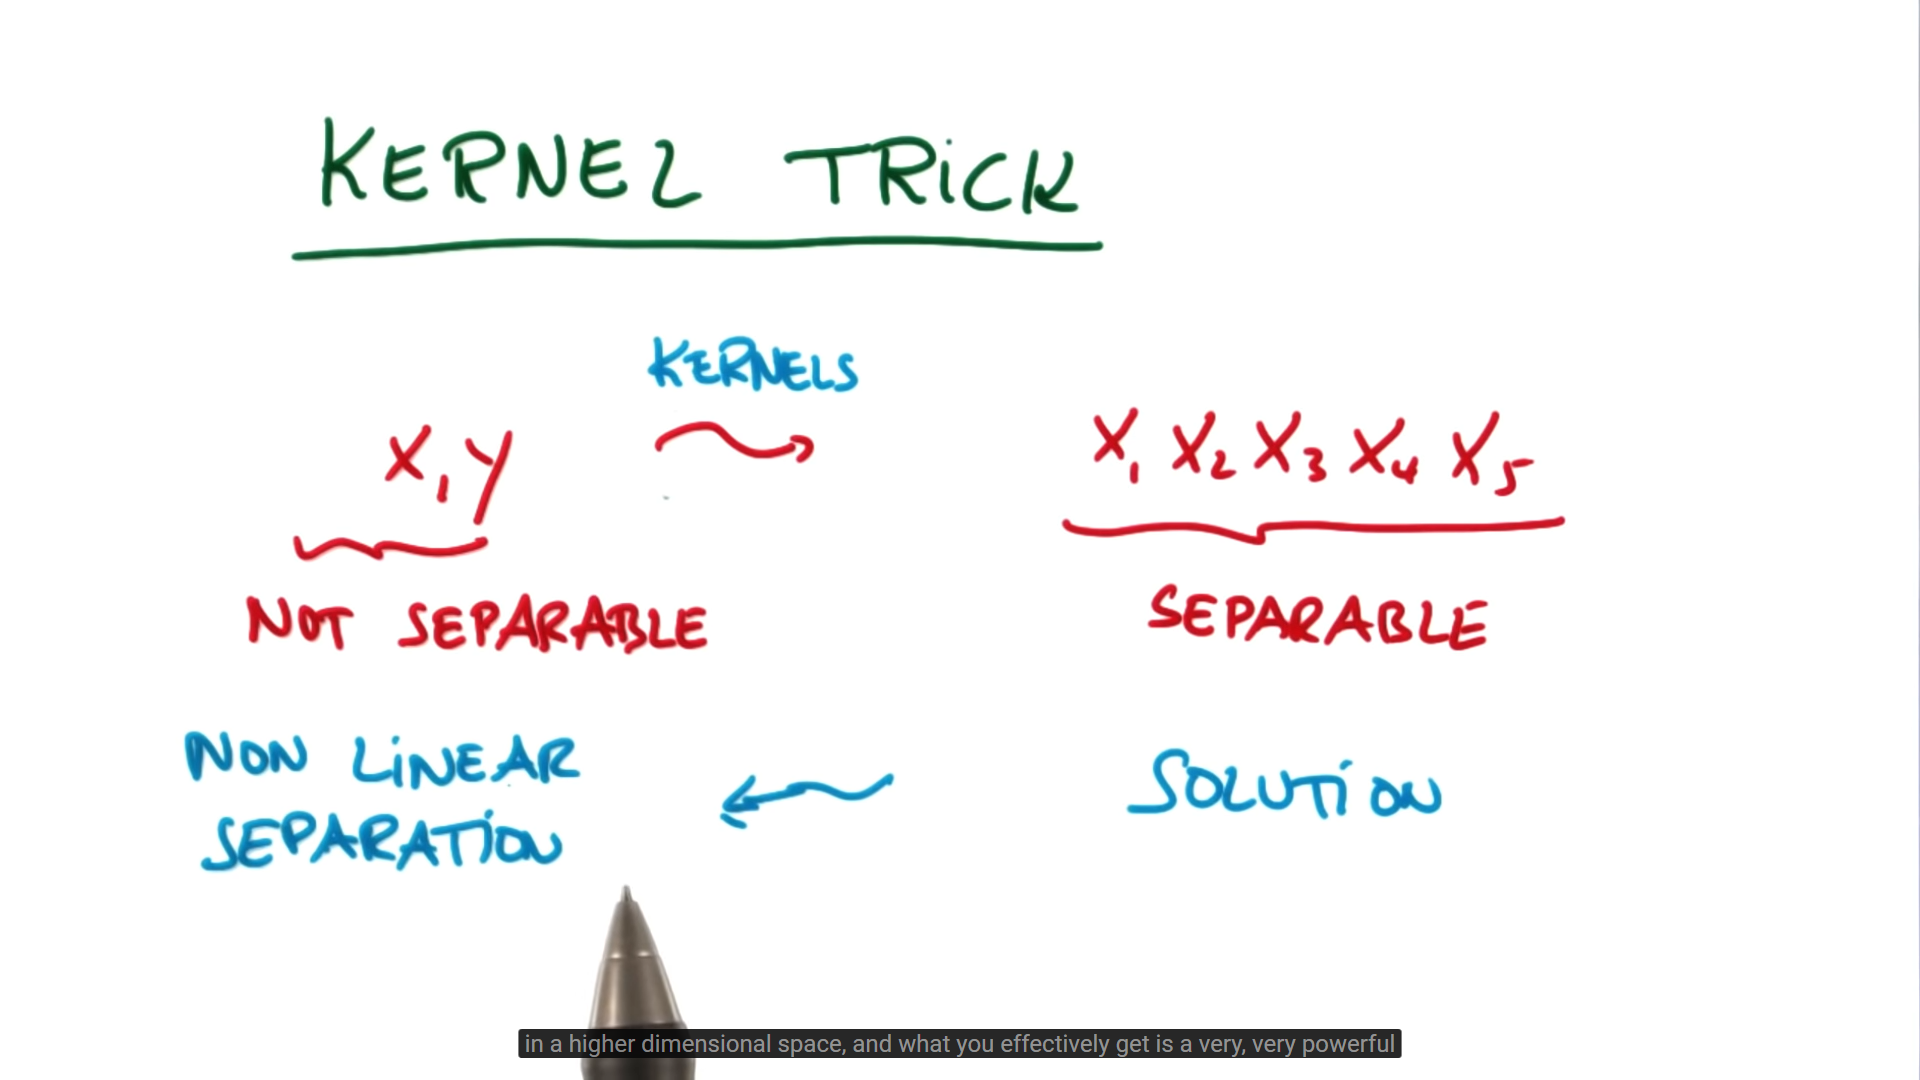 KERNEL TRICK
KERNELS
X, Y
X1 X2 X3 X4 X5
NOT SEPARABLE
SEPARABLE
NON LINEAR
SEPARATION
SOLUTION
in a higher dimensional space, and what you effectively get is a very, very powerful